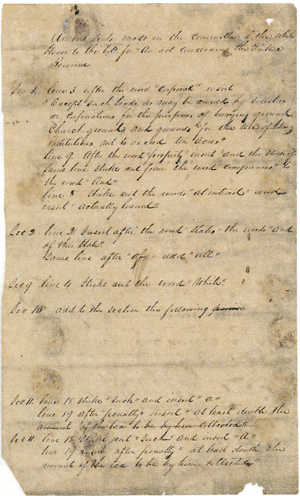 Amendments made in the committee of the whole
House to the bill for "An act concerning the Public
Revenue
Sec 1. line 3 after the word "corporate" insert
"Except such lands as may be owned by
or for the purposes of burying ground
Church grounds, and grounds for the use of
institutions not to exceed Ten Acres"
line 9. After the word "property" insert "and the
same line strike out from the word to
the word "And"
line strike out the words "at interest" and
insert "actually loaned"
Sec 2 line 2 insert after the word State "the words" and
of this State
Same line after "of" add "all"
Sec 9 line 4 Strike out the word "White"
Sec 10 add to the section the following
Sec 11. line 18 strike "such" and insert "a"
line 19 after "penalty" insert "at least double the
amount of the tax to be by him collected"
Sec 11 line 18 strike out "Such" and insert "A"
line 19 after "penalty" at least double the
amount of the tax to be by him collected"